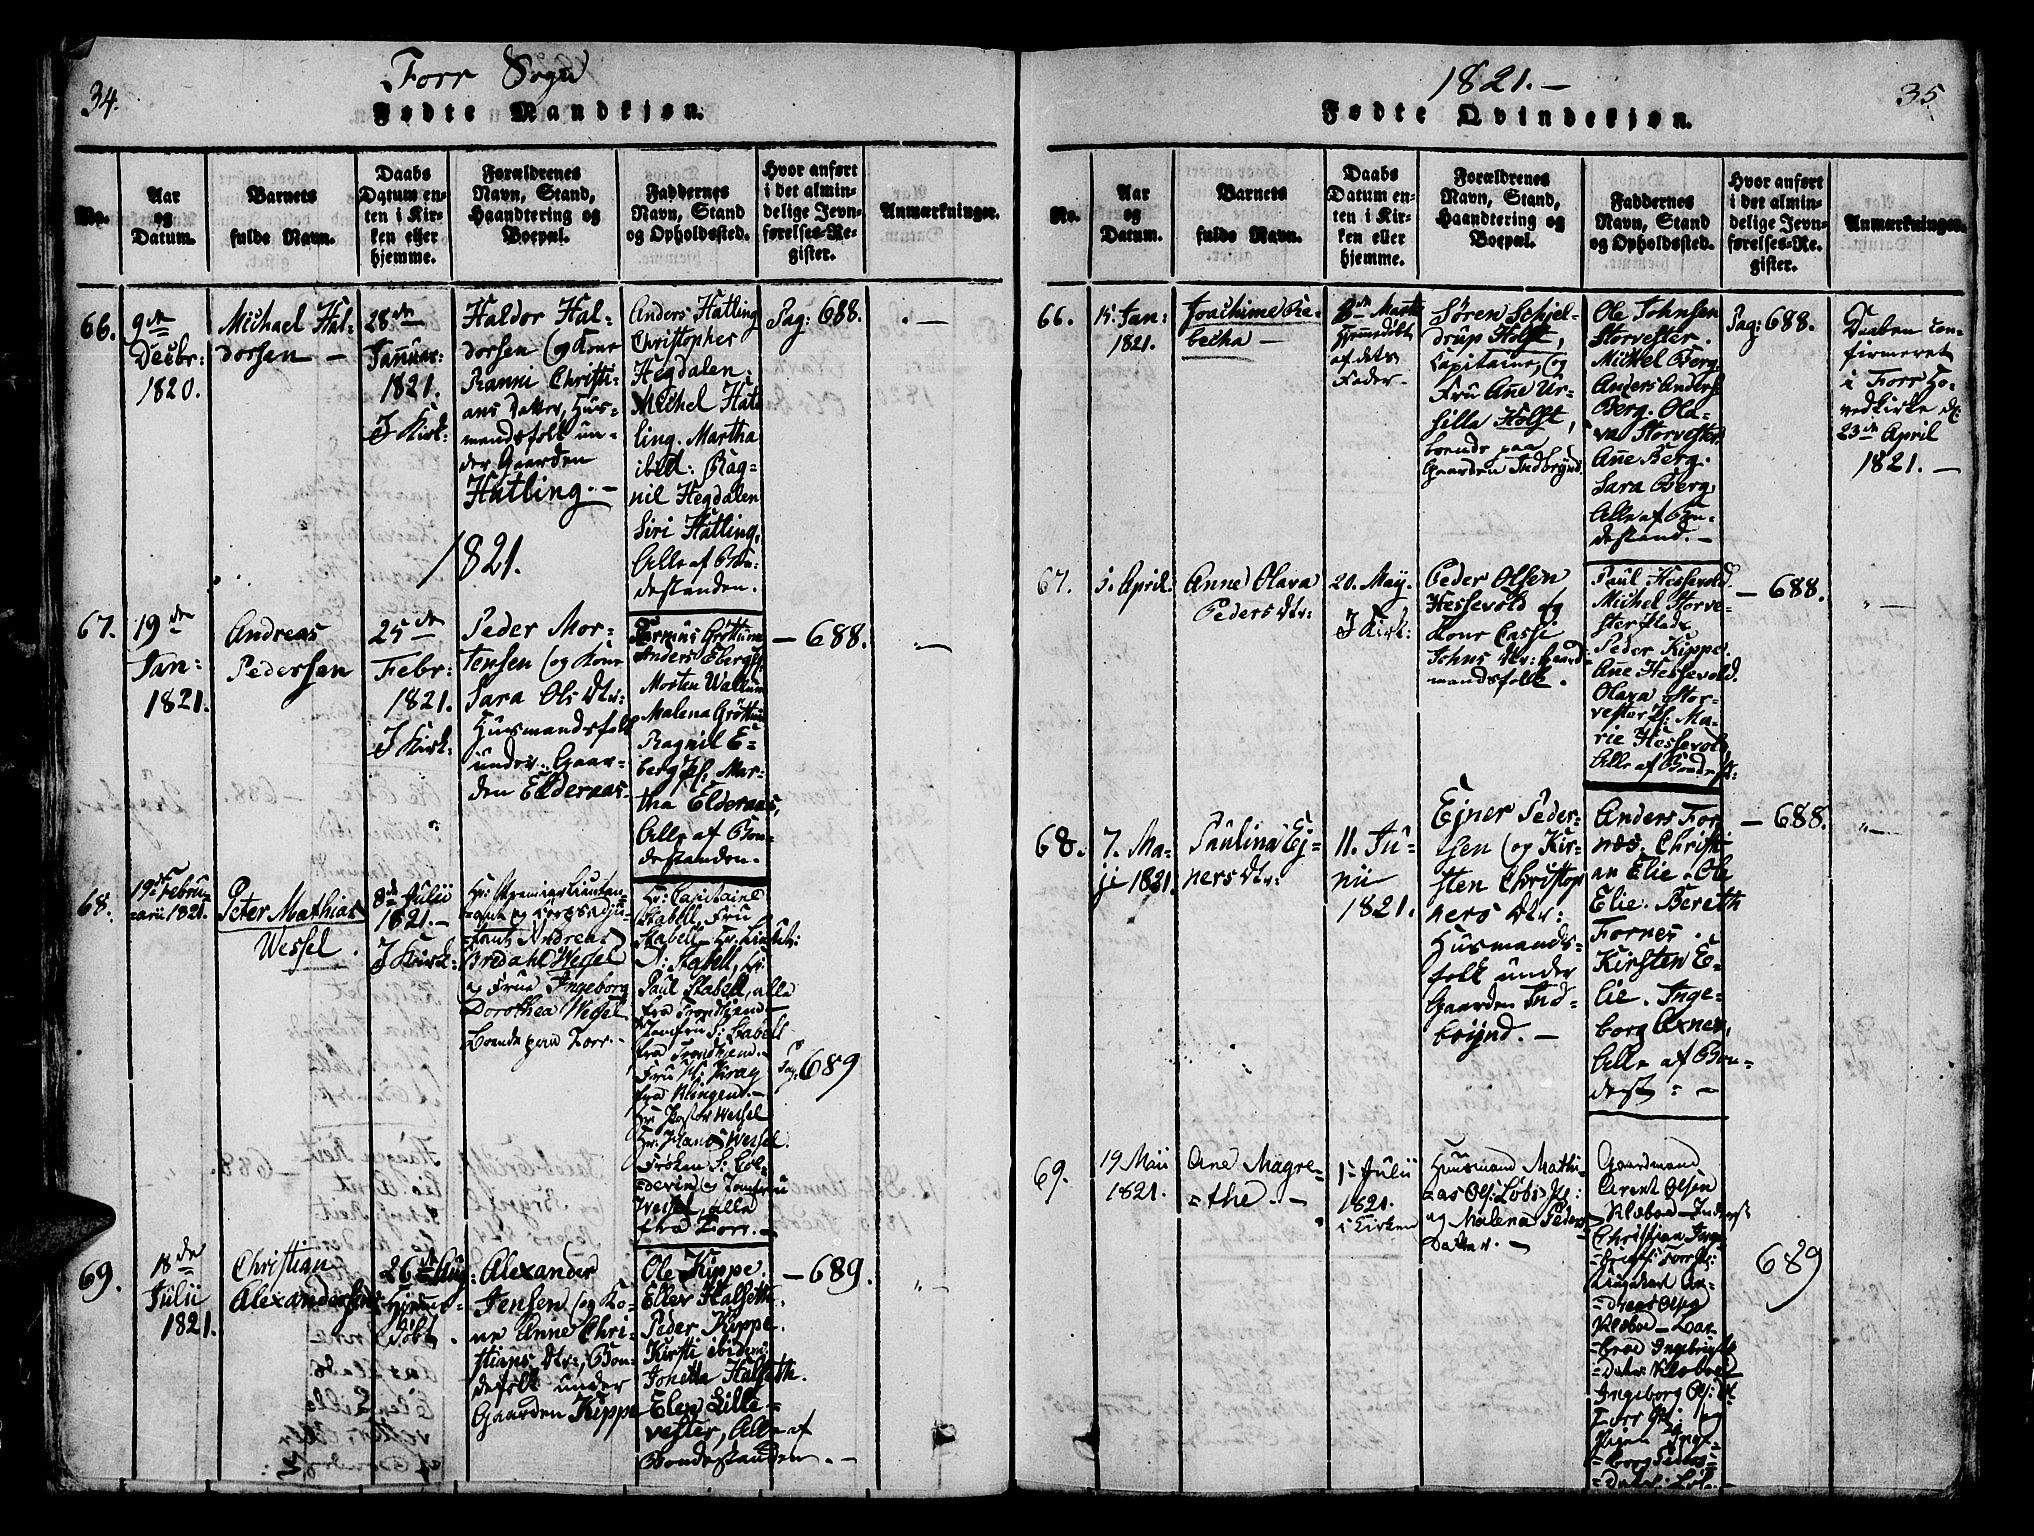 34.
Forr Sogn
Fødte Mandkjøn.
No.
Aar
og
Datum.
Barnets
fulde Navn.
Daabs
Datum en-
ten i Kir-
ken eller
hjemme.
Forældrenes
Navn, Stand,
Haandtering og
Boepæl.
Faddernes
Navn, Stand
og Opholdssted.
Hvor anført
i det almin-
delige Jevn-
førelses-Re-
gister.
Anmærkninger.
66.
9de
Desbr:
1820.
Michael Hal-
dorsen —
28de
Januar:
1821.
I Kirk:
Haldor Hal-
dorsen og Kone
Ranni Christi-
ans Datter, Hus-
mandsfolk un-
der Gaarden
Hatling. —
Anders Hatling
Christopher
Hegdalen.
Michel Hat-
ling. Martha
ibid: Rag-
nil Hegdalen
Siri Hatling.
Alle af Bon-
destanden.
Pag: 688.
. —
1821.
67.
19de
Jan:
1821.
Andreas
Pedersen
25de
Febr:
1821.
I Kirk:
Peder Mor-
tensen og Kone
Sara Ols Dtr:
Huusmandsfolk
under Gaar-
den Elderaas.
Rasmus Gröttum
Anders Eberg
Morten Wallum
Malena Gröttum
Ragnil E-
berg pf: Mar-
tha Elderaas,
Alle af Bon-
destanden.
— 688.
„ —
68.
19de Febru-
arii 1821.
Peter Mathias
Wessel.
8de Julii
1821. —
I Kirk:
Hr: Premier Lieuten-
ant og Corps Adju-
tant Andreas
Bredahl Wessel
og Frue Ingeborg
Dorothea Wessel
boende paa Forr. —
Hr: Capitaine
Stabell, Fru
Stabell, Hr. Lieutet:
Stabell, Hr
Paul Stabell, alle
fra Trondhjem
Jomfru S: Stabell
fra Trondhjem. —
Fru Krag
fra Klingen. —
Hr: Pastor Wessel
Hr: Hans Wessel.
Frøken S:
og Jomfru
Wessel, alle
fra Forr. —
Pag: 689
69.
18de
Julii
1821.
Christian
Alexandersen
26de Aug:
Hjemme-
döbt.
Alexander
Jensen og Ko-
ne Anne Chri-
stians Dtr:, Bon-
defolk under
Gaarden Kippe
Ole Kippe.
Eller Halseth.
Peder Kippe.
Kirsti ibidem.
Johetta Halseth.
Elen Lille-
vester, Alle af
Bondestanden. —
— 689.
„ —
1821. —
35.
Fødte Qvindekjøn.
No.
Aar
og
Datum.
Barnets
fulde Navn.
Daabs
Datum en-
ten i Kir-
ken eller
hjemme.
Forældrenes
Navn, Stand,
Haandtering og
Boepæl.
Faddernes
Navn, Stand
og Opholdssted.
Hvor anført
i det almin-
delige Jevn-
førelses-Re-
gister.
Anmærkninger.
66.
15 Jan:
1821.
Joachime Re-
becha —
8de Martii
hjemmedöbt
af dets
Fader.
Sören Schjel-
drup Holst,
Capitaine, og
Fru Ane Ur-
silla Holst,
boende paa
Gaarden Indbrynd.
Ole Johnsen
Storvester.
Michel Berg
Anders Anders:
Berg. Ola-
va Storvester
Ane Berg.
Sara Berg.
Alle af Bon-
destand. —
Pag: 688.
Daaben con-
firmeret
i Forr Ho-
vedkirke d:
23de April
1821. —
67.
5. April.
Anne Olava
Peders Dtr:
20. May.
I Kirk:
Peder Olsen
Hessevold og
Kone Lassi
Johns Dtr: Gaard-
mandsfolk.
Paul Hessevold.
Michel Storve-
ster
Peder Kippe.
Ane Hessevold.
Olava Stor-
vester pf: Ma-
rie Hessevold,
Alle af Bondest:
— 688.
„ —
68.
7. Ma-
ji 1821.
Paulina Ej-
ners Dtr:
11. Ju-
nii
1821.
Ejner Peder-
sen og Kir-
sten Christop-
hers Dtr:
Husmands-
folk under
Gaarden Ind-
brynd. —
Anders For-
næs. Christi-
an Elie. Ole
Elie. Bereth
Fornes.
Kirsten E-
lie. Inge-
borg Oxnes,
Alle af Bon-
dest: —
— 688.
„ —
69.
19 Maii
1821.
Ane Magre-
the. —
1te Julii
1821.
i Kirken
Huusmand Mathi-
as Ols:
og Malena Peders
Datter. —
Gaardmand
Arent Olsen
Kleboe —
Christian Inge-
brigts: Forr
Ungkarl An-
dreas Olsen
Kleboe —
Ingebrigts
Datter Kleboe
Ingeborg Ols:
Forr og
Pigen Inge-
borg Peders
Datter
689